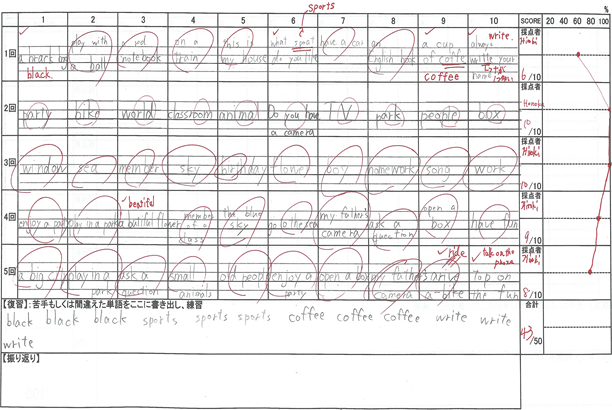 sports
1 2 3 4 5 6 7 8 9 10 SCORE 20 40 60 80 100 %
1回 play with a ball a red notebook on a train this is my house what spoat do you like have a cat an English book a cun of coffe always write your name 6/10 採点者
black. coffee write.
2回 party bike world classroom animal Do you have a camera TV park people box 10/10 採点者 Honoka
3回 window sea member sky birthday love joy homework song work 10/10 採点者
4回 enjoy a party play in a park a butiful flower member of a class the blue sky go to the sea my fathers camera ask a question open a box have fun 9/10 採点者
beatiful
5回 a big cat play in a park ask a question small animals people enjoy a party open a box my father camera a bike Top on the fun 8/10 採点者
ride take on the phone
【復習】:苦手もしくは間違えた単語をここに書き出し、練習 合計
black black black sports sports sports coffee coffee coffee write write 43/50
write
【振り返り】